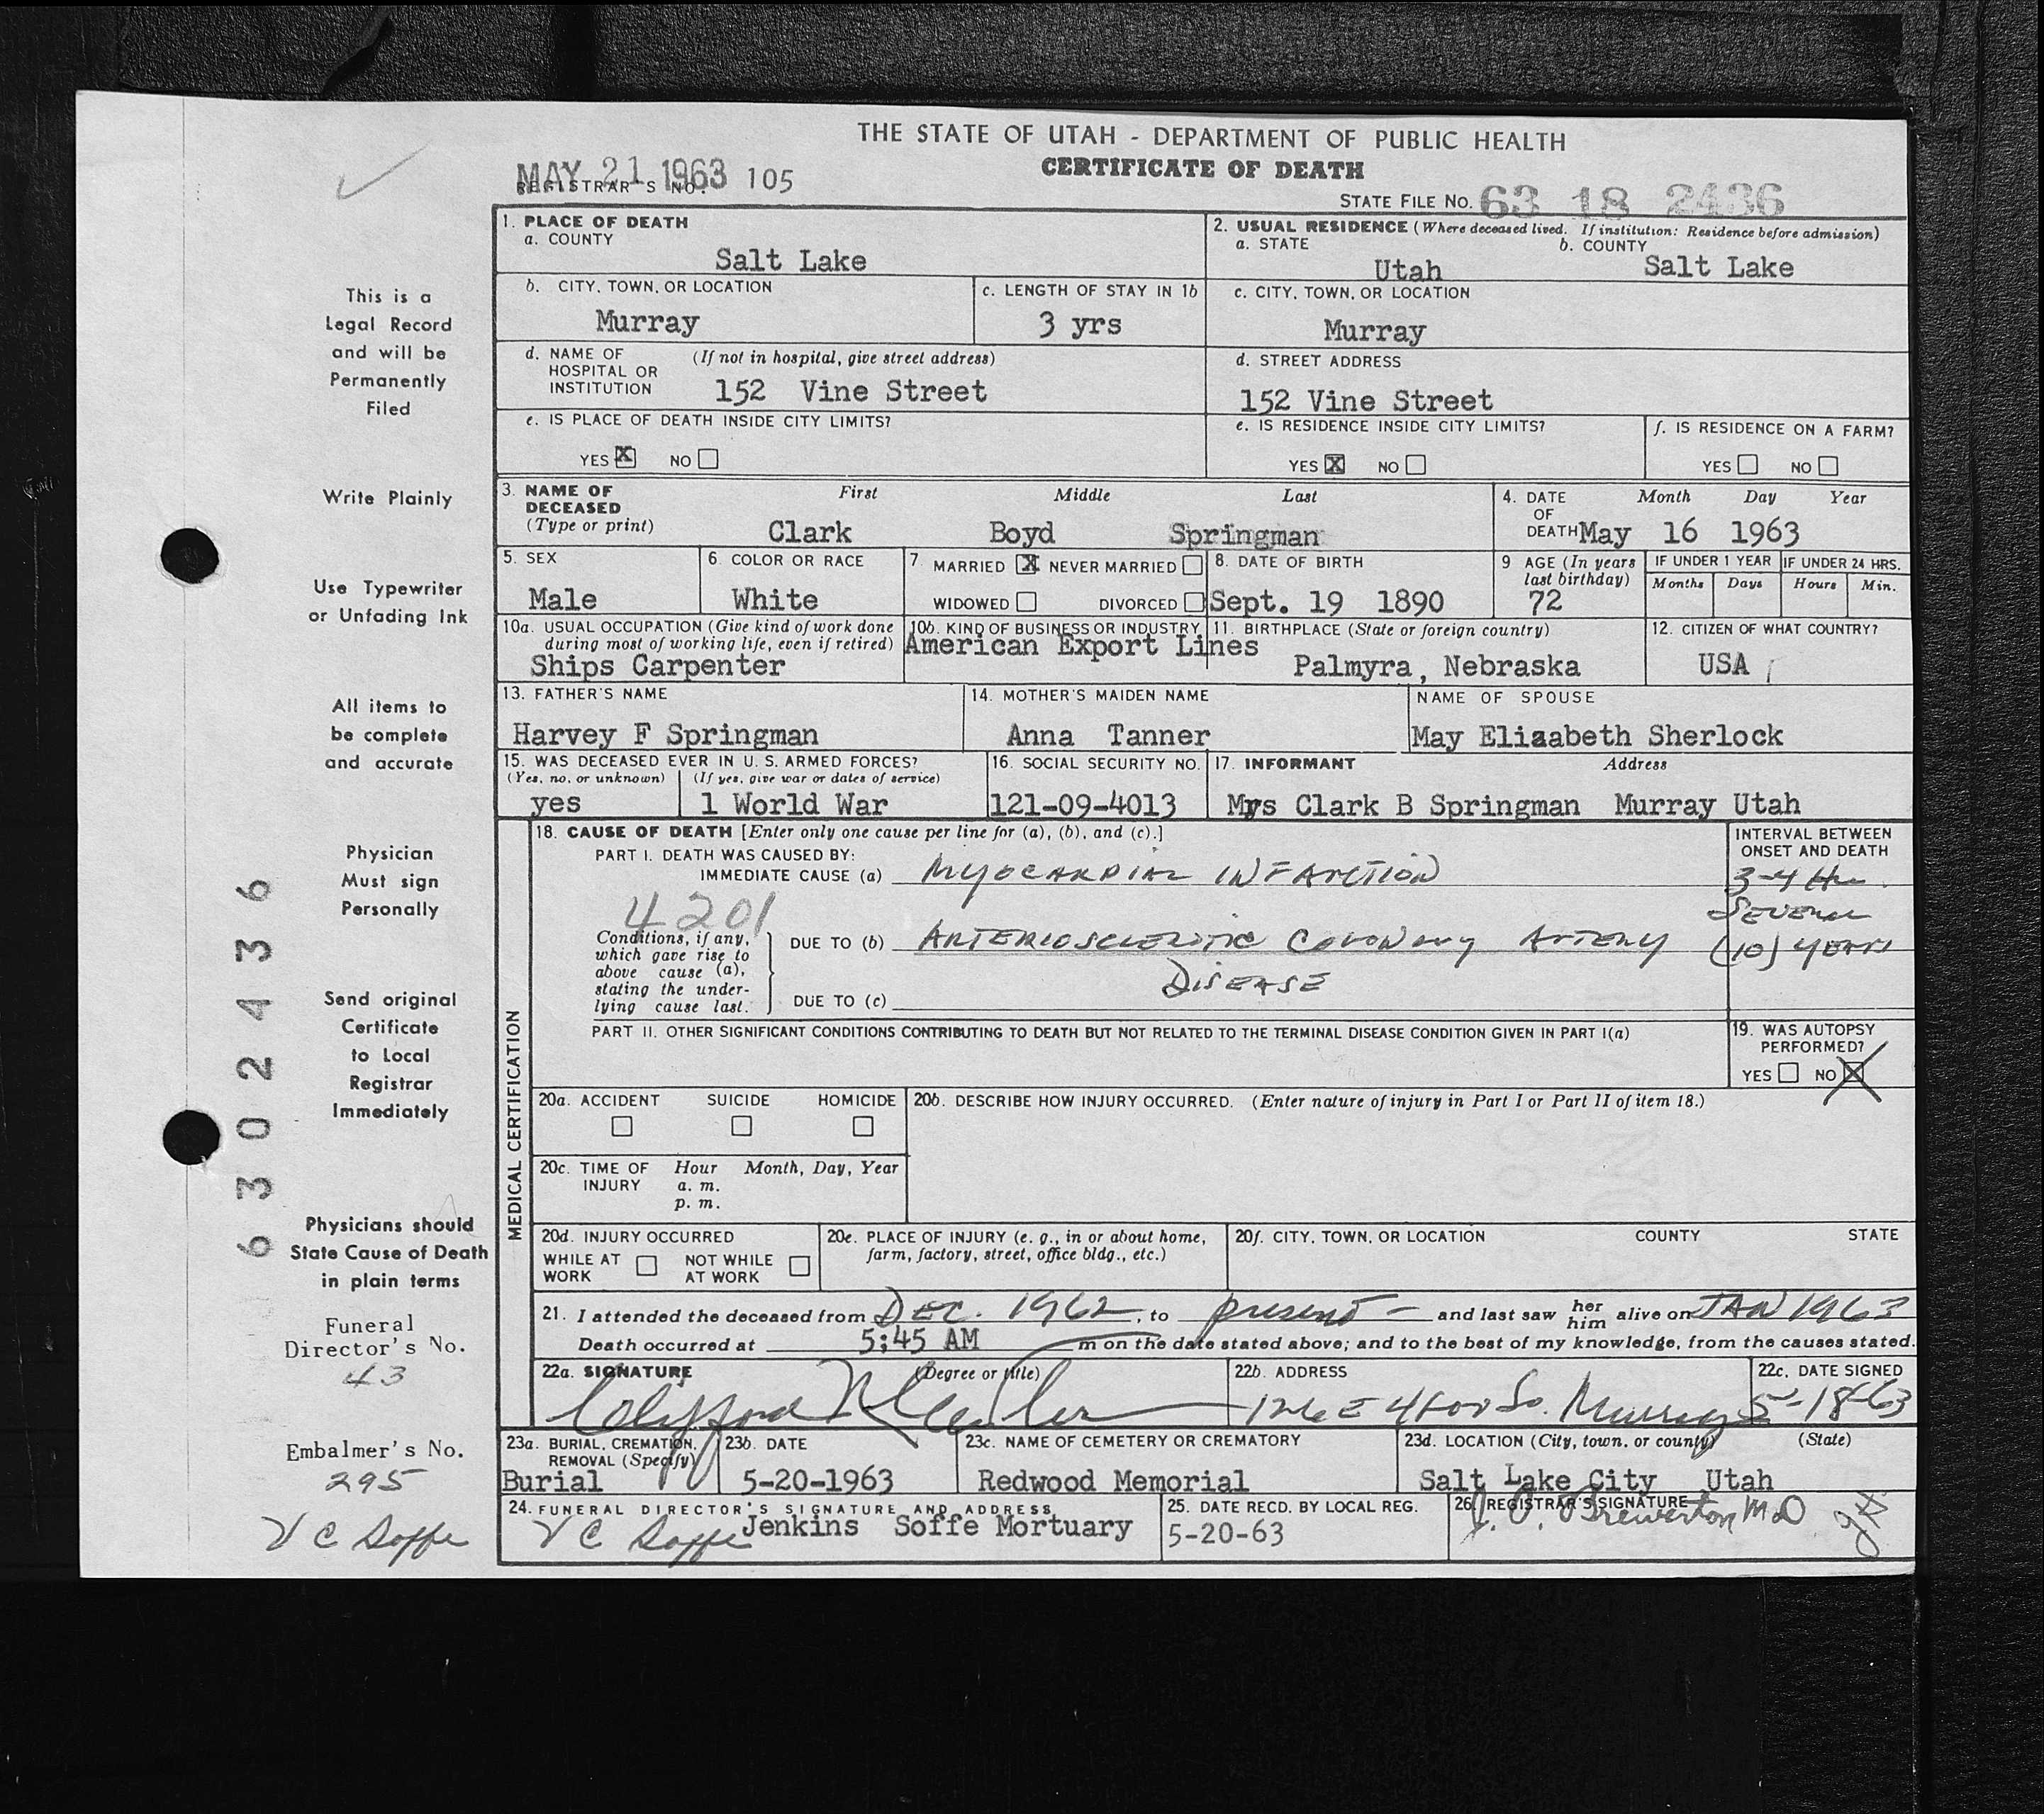 THE STATE OF UTAH - DEPARTMENT OF PUBLIC HEALTH
CERTIFICATE OF DEATH
MAY 21 1963
REGISTRAR'S NO. 105
STATE FILE NO. 63 18 2436
1. PLACE OF DEATH
a. COUNTY
Salt Lake
2. USUAL RESIDENCE (Where deceased lived. If institution: Residence before admission)
a. STATE b. COUNTY
Utah Salt Lake
b. CITY, TOWN, OR LOCATION
Murray
c. LENGTH OF STAY IN 1b
3 yrs
c. CITY, TOWN, OR LOCATION
Murray
d. NAME OF HOSPITAL OR INSTITUTION (If not in hospital, give street address)
152 Vine Street
d. STREET ADDRESS
152 Vine Street
e. IS PLACE OF DEATH INSIDE CITY LIMITS?
YES X NO
e. IS RESIDENCE INSIDE CITY LIMITS?
YES X NO
f. IS RESIDENCE ON A FARM?
YES NO
3. NAME OF DECEASED (Type or print) First Middle Last
Clark Boyd Springman
4. DATE OF DEATH Month Day Year
May 16 1963
5. SEX
Male
6 COLOR OR RACE
White
7 MARRIED X NEVER MARRIED
WIDOWED DIVORCED
8. DATE OF BIRTH
Sept. 19 1890
9 AGE (In years last birthday)
72
IF UNDER 1 YEAR IF UNDER 24 HRS.
Months Days Hours Min.
10a. USUAL OCCUPATION (Give kind of work done during most of working life, even if retired)
Ships Carpenter
10b. KIND OF BUSINESS OR INDUSTRY
American Export Lines
11. BIRTHPLACE (State or foreign country)
Palmyra, Nebraska
12. CITIZEN OF WHAT COUNTRY?
USA
13. FATHER'S NAME
Harvey F Springman
14. MOTHER'S MAIDEN NAME
Anna Tanner
NAME OF SPOUSE
May Eliaabeth Sherlock
15. WAS DECEASED EVER IN U. S. ARMED FORCES?
(Yes, no, or unknown) (If yes, give war or dates of service)
yes 1 World War
16. SOCIAL SECURITY NO.
121-09-4013
17. INFORMANT Address
Mrs Clark B Springman Murray Utah
MEDICAL CERTIFICATION
18. CAUSE OF DEATH [Enter only one cause per line for (a), (b), and (c).]
INTERVAL BETWEEN ONSET AND DEATH
PART I. DEATH WAS CAUSED BY:
IMMEDIATE CAUSE (a) MYOCARDIAL INFARCTION 3-4 Hrs.
4201
Conditions, if any, which gave rise to above cause (a), stating the underlying cause last.
DUE TO (b) ARTERIOSCLEROTIC CORONARY ARTERY DISEASE
SEVERAL (10) YEARS
DUE TO (c)
PART II. OTHER SIGNIFICANT CONDITIONS CONTRIBUTING TO DEATH BUT NOT RELATED TO THE TERMINAL DISEASE CONDITION GIVEN IN PART I(a)
19. WAS AUTOPSY PERFORMED?
YES NO X
20a. ACCIDENT SUICIDE HOMICIDE
20b. DESCRIBE HOW INJURY OCCURRED. (Enter nature of injury in Part I or Part II of item 18.)
20c. TIME OF INJURY Hour Month, Day, Year
a. m.
p. m.
20d. INJURY OCCURRED
WHILE AT WORK NOT WHILE AT WORK
20e. PLACE OF INJURY (e. g., in or about home, farm, factory, street, office bldg., etc.)
20f. CITY, TOWN, OR LOCATION COUNTY STATE
21. I attended the deceased from DEC. 1962, to present and last saw her him alive on JAN 1963
Death occurred at 5:45 AM m on the date stated above; and to the best of my knowledge, from the causes stated.
22a. SIGNATURE (Degree or title)
Clifford
22b. ADDRESS
126 E 4800 So. Murray
22c. DATE SIGNED
5-18-63
23a. BURIAL, CREMATION, REMOVAL (Specify)
Burial
23b. DATE
5-20-1963
23c. NAME OF CEMETERY OR CREMATORY
Redwood Memorial
23d. LOCATION (City, town, or county) (State)
Salt Lake City Utah
24. FUNERAL DIRECTOR'S SIGNATURE AND ADDRESS
V C Soffe Jenkins Soffe Mortuary
25. DATE RECD. BY LOCAL REG.
5-20-63
26. REGISTRAR'S SIGNATURE
J. O. Brewerton M D
This is a
Legal Record
and will be
Permanently
Filed
Write Plainly
Use Typewriter
or Unfading Ink
All items to
be complete
and accurate
Physician
Must sign
Personally
Send original
Certificate
to Local
Registrar
Immediately
Physicians should
State Cause of Death
in plain terms
Funeral
Director's No.
43
Embalmer's No.
295
V C Soffe
6302436